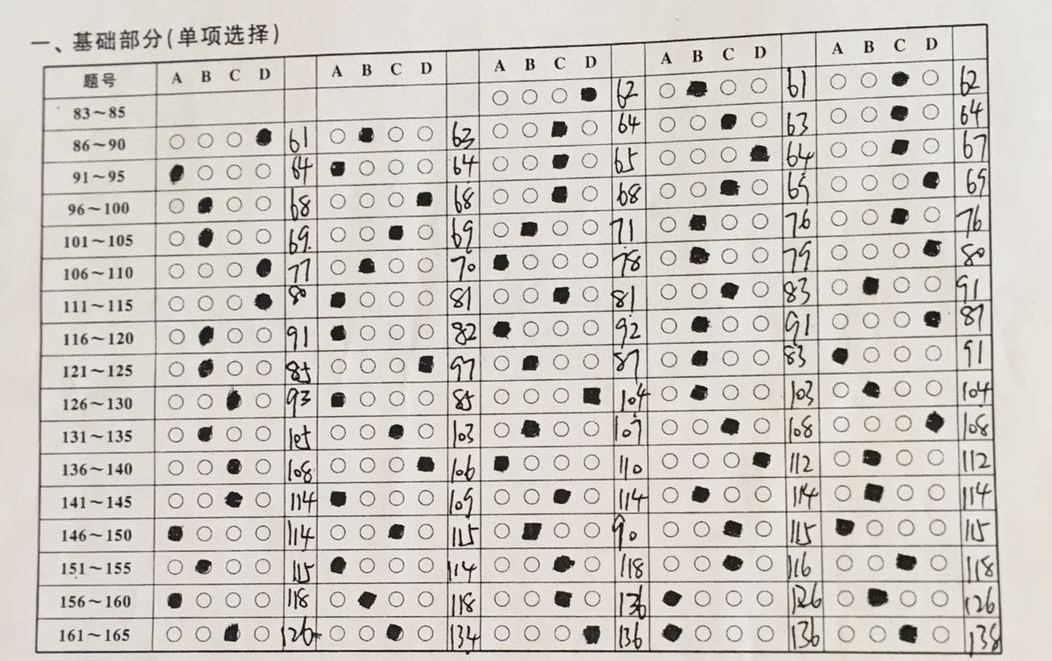 一、基础部分(单项选择)
题号 A B C D A B C D A B C D A B C D A B C D
83～85 62 61 62
86～90 61 63 64 63 64
91～95 64 64 65 64 67
96～100 68 68 68 69 69
101～105 69. 69 71 76 76
106～110 77 70 78 79 80
111～115 80 81 81 83 91
116～120 91 82 92 91 87
121～125 85 97 87 83 91
126～130 93 85 104 103 104
131～135 105 103 107 108 108
136～140 108 106 110 112 112
141～145 114 109 114 114 114
146～150 114 115 90 115 115
151～155 115 114 118 116 118
156～160 118 118 136 126 126
161～165 126 134 136 136 138